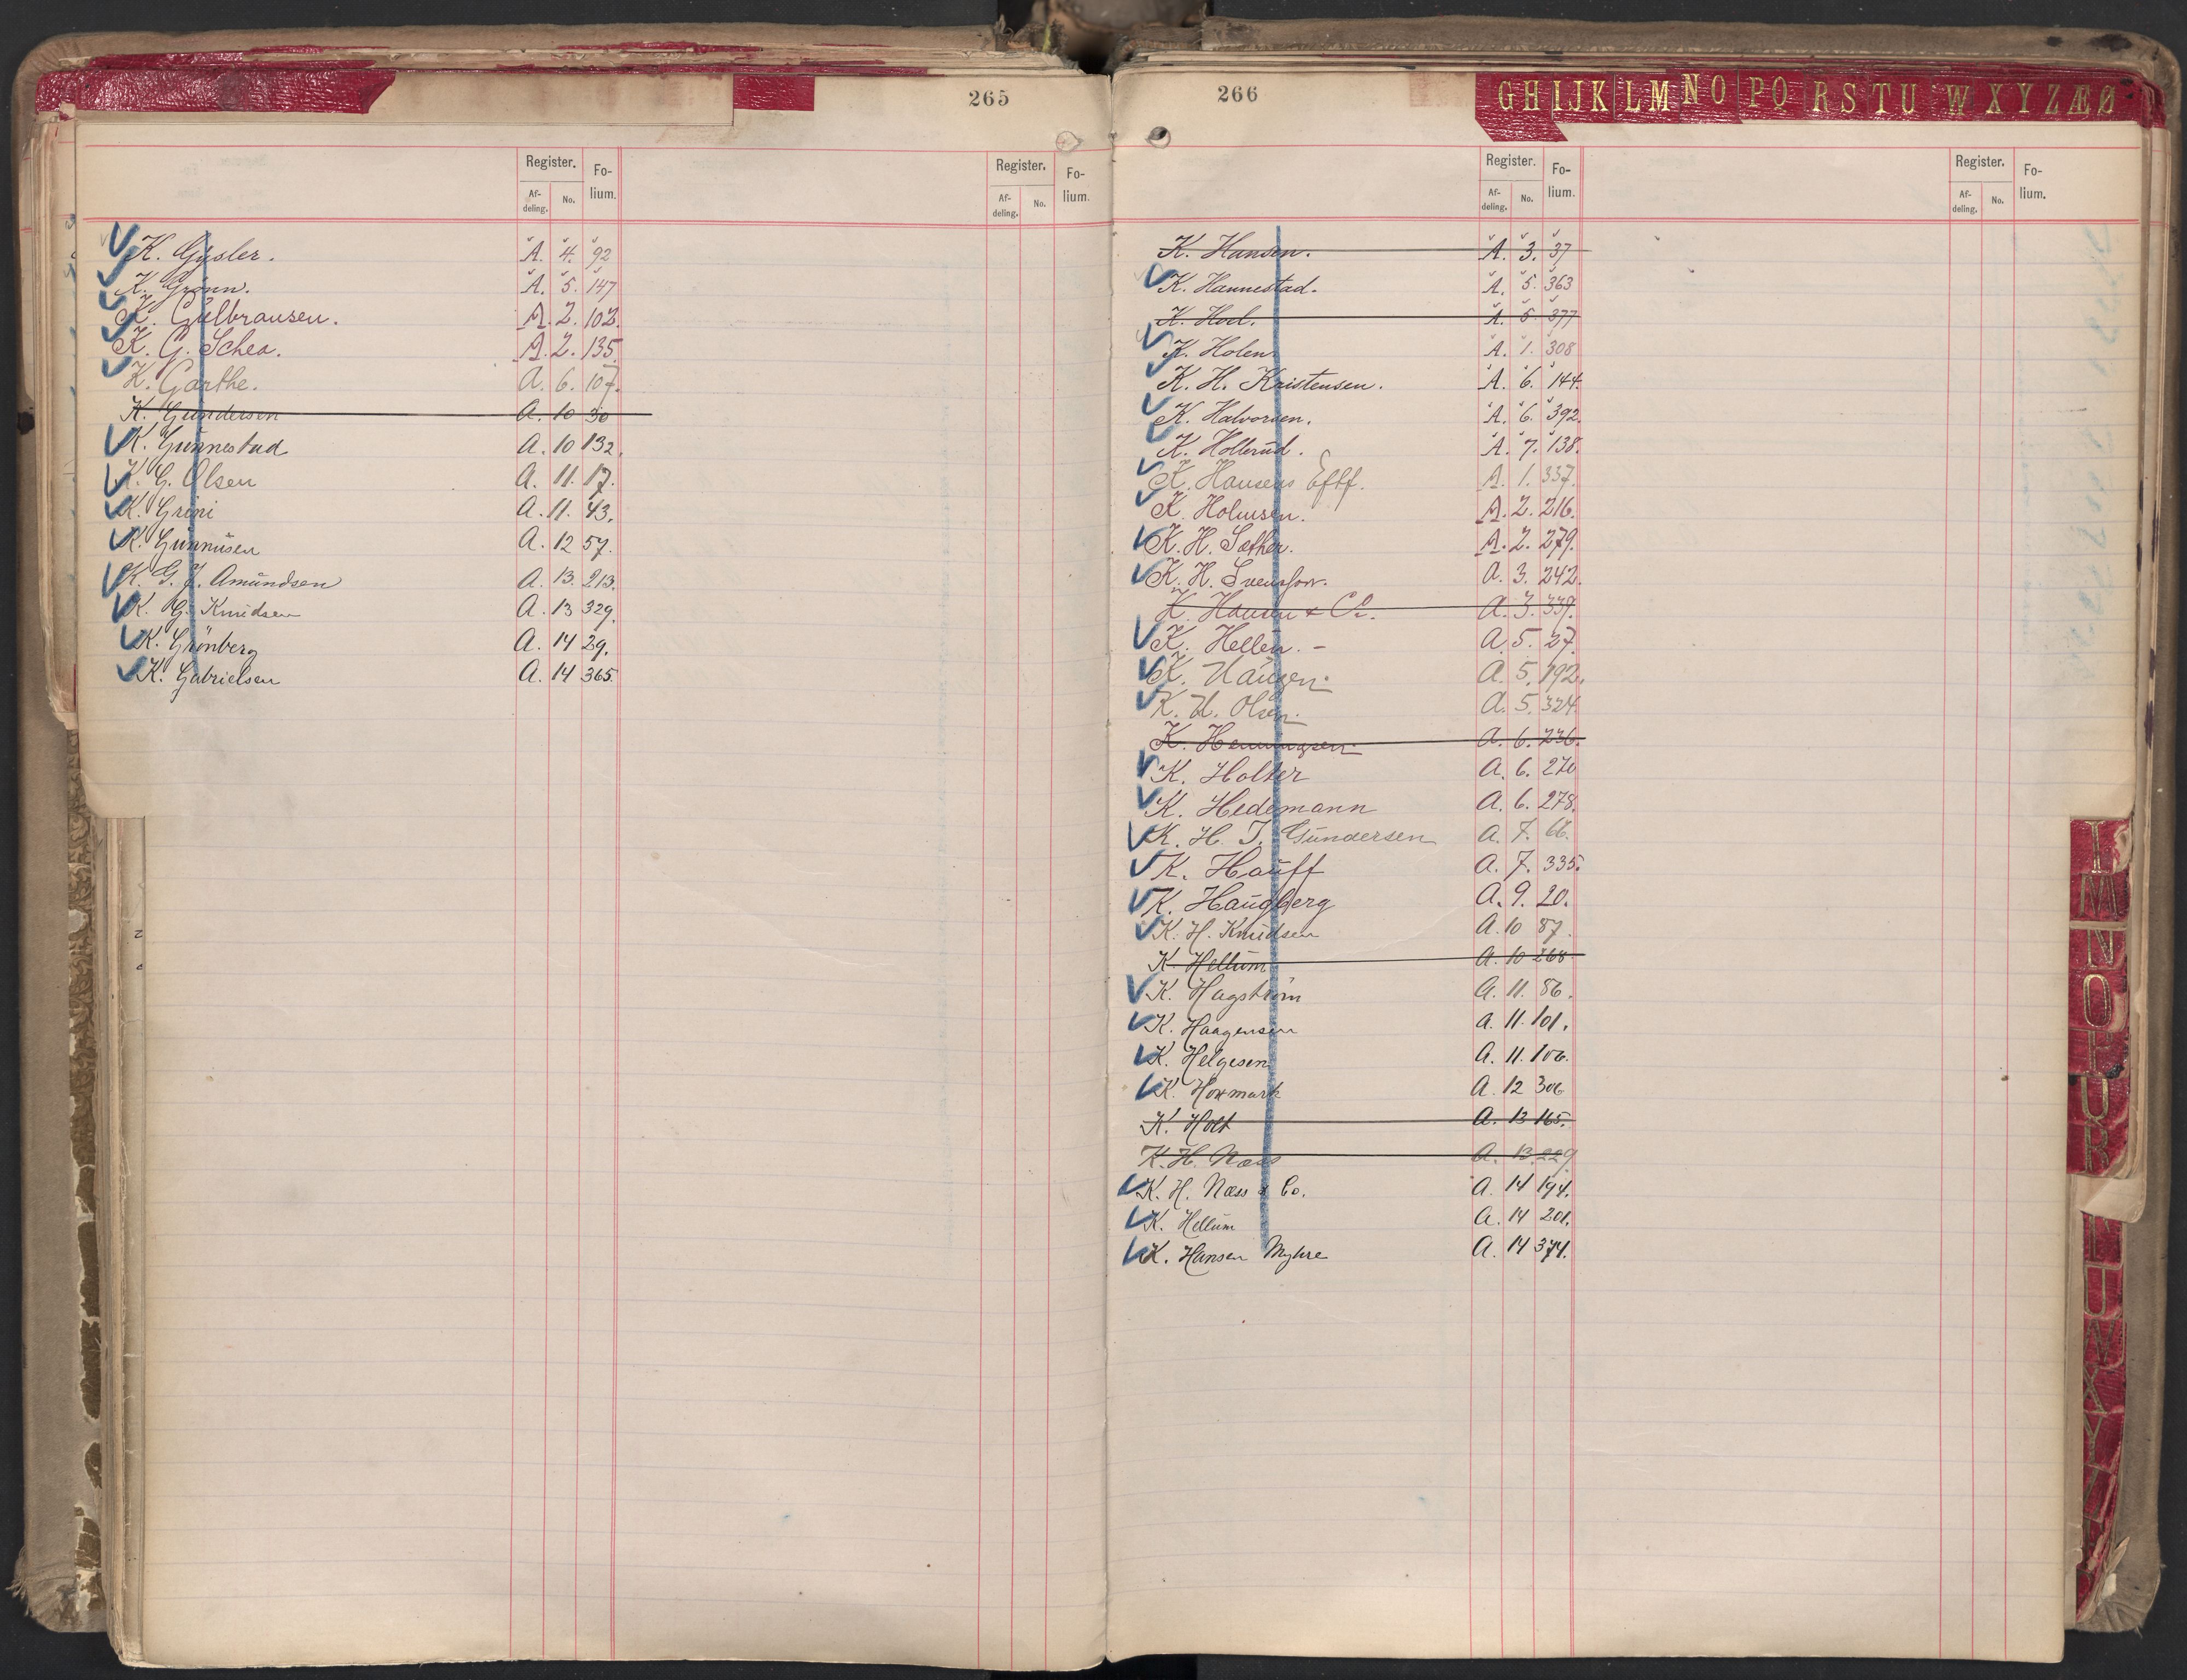 265
Register. Fo-lium. Register. Fo-lium.
Af-deling. No. Af-deling. No.
K. Gysler. A. 4. 92
K. Grönn. A. 5. 147
K. Gulbransen. A. 2. 102.
K. G. Schea. A. 2. 135.
K. Garthe. A. 6. 107.
K. Gundersen A. 10 30
K. Gunnestad A. 10 132.
K. G. Olsen A. 11. 17.
K. Grini A. 11. 43.
K. Gunnusen A. 12 57.
K. G. J. Amundsen A. 13. 213.
K. G. Knudsen A. 13 329.
K. Grönberg A. 14 29.
K. Gabrielsen A. 14 365.
266
G H IJ K L M N O P Q R S T U W X Y Z Æ Ø
Register. Fo-lium. Register. Fo-lium.
Af-deling. No. Af-deling. No.
K. Hansen. A. 3. 37
K. Hannestad. A. 5. 363
K. Hoel. A. 5. 377
K. Holen. A. 1. 308
K. H. Kristensen. A. 6. 144.
K. Halvorsen. A. 6. 392.
K. Hollerud. A. 7. 138.
K. Hansens Eftf. A. 1. 337.
K. Holmsen. A. 2. 216.
K. H. Sæther. A. 2. 279.
K. H. Svensson. A. 3. 242.
K. Hansen & Co. A. 3. 339.
K. Hellen. – A. 5. 27.
K. Haugen. A. 5. 192.
K. H. Olsen. A. 5. 324.
K. Henningsen. A. 6. 236.
K. Holter A. 6. 270
K. Hedemann A. 6. 278.
K. H. T. Gundersen A. 7. 66.
K. Hauff A. 7. 335.
K. Haugberg A. 9. 20.
K. H. Knudsen A. 10 87.
K. Hellum A. 10 268
K. Hagström A. 11. 86.
K. Haagensen A. 11. 101.
K. Helgesen A. 11. 106.
K. Hoxmark A. 12 306
K. Holt A. 13 165.
K. H. Næss A. 13. 229
K. H. Næss & Co. A. 14 194.
K. Hellum A. 14 201.
K. Hansen Myhre A. 14 374.